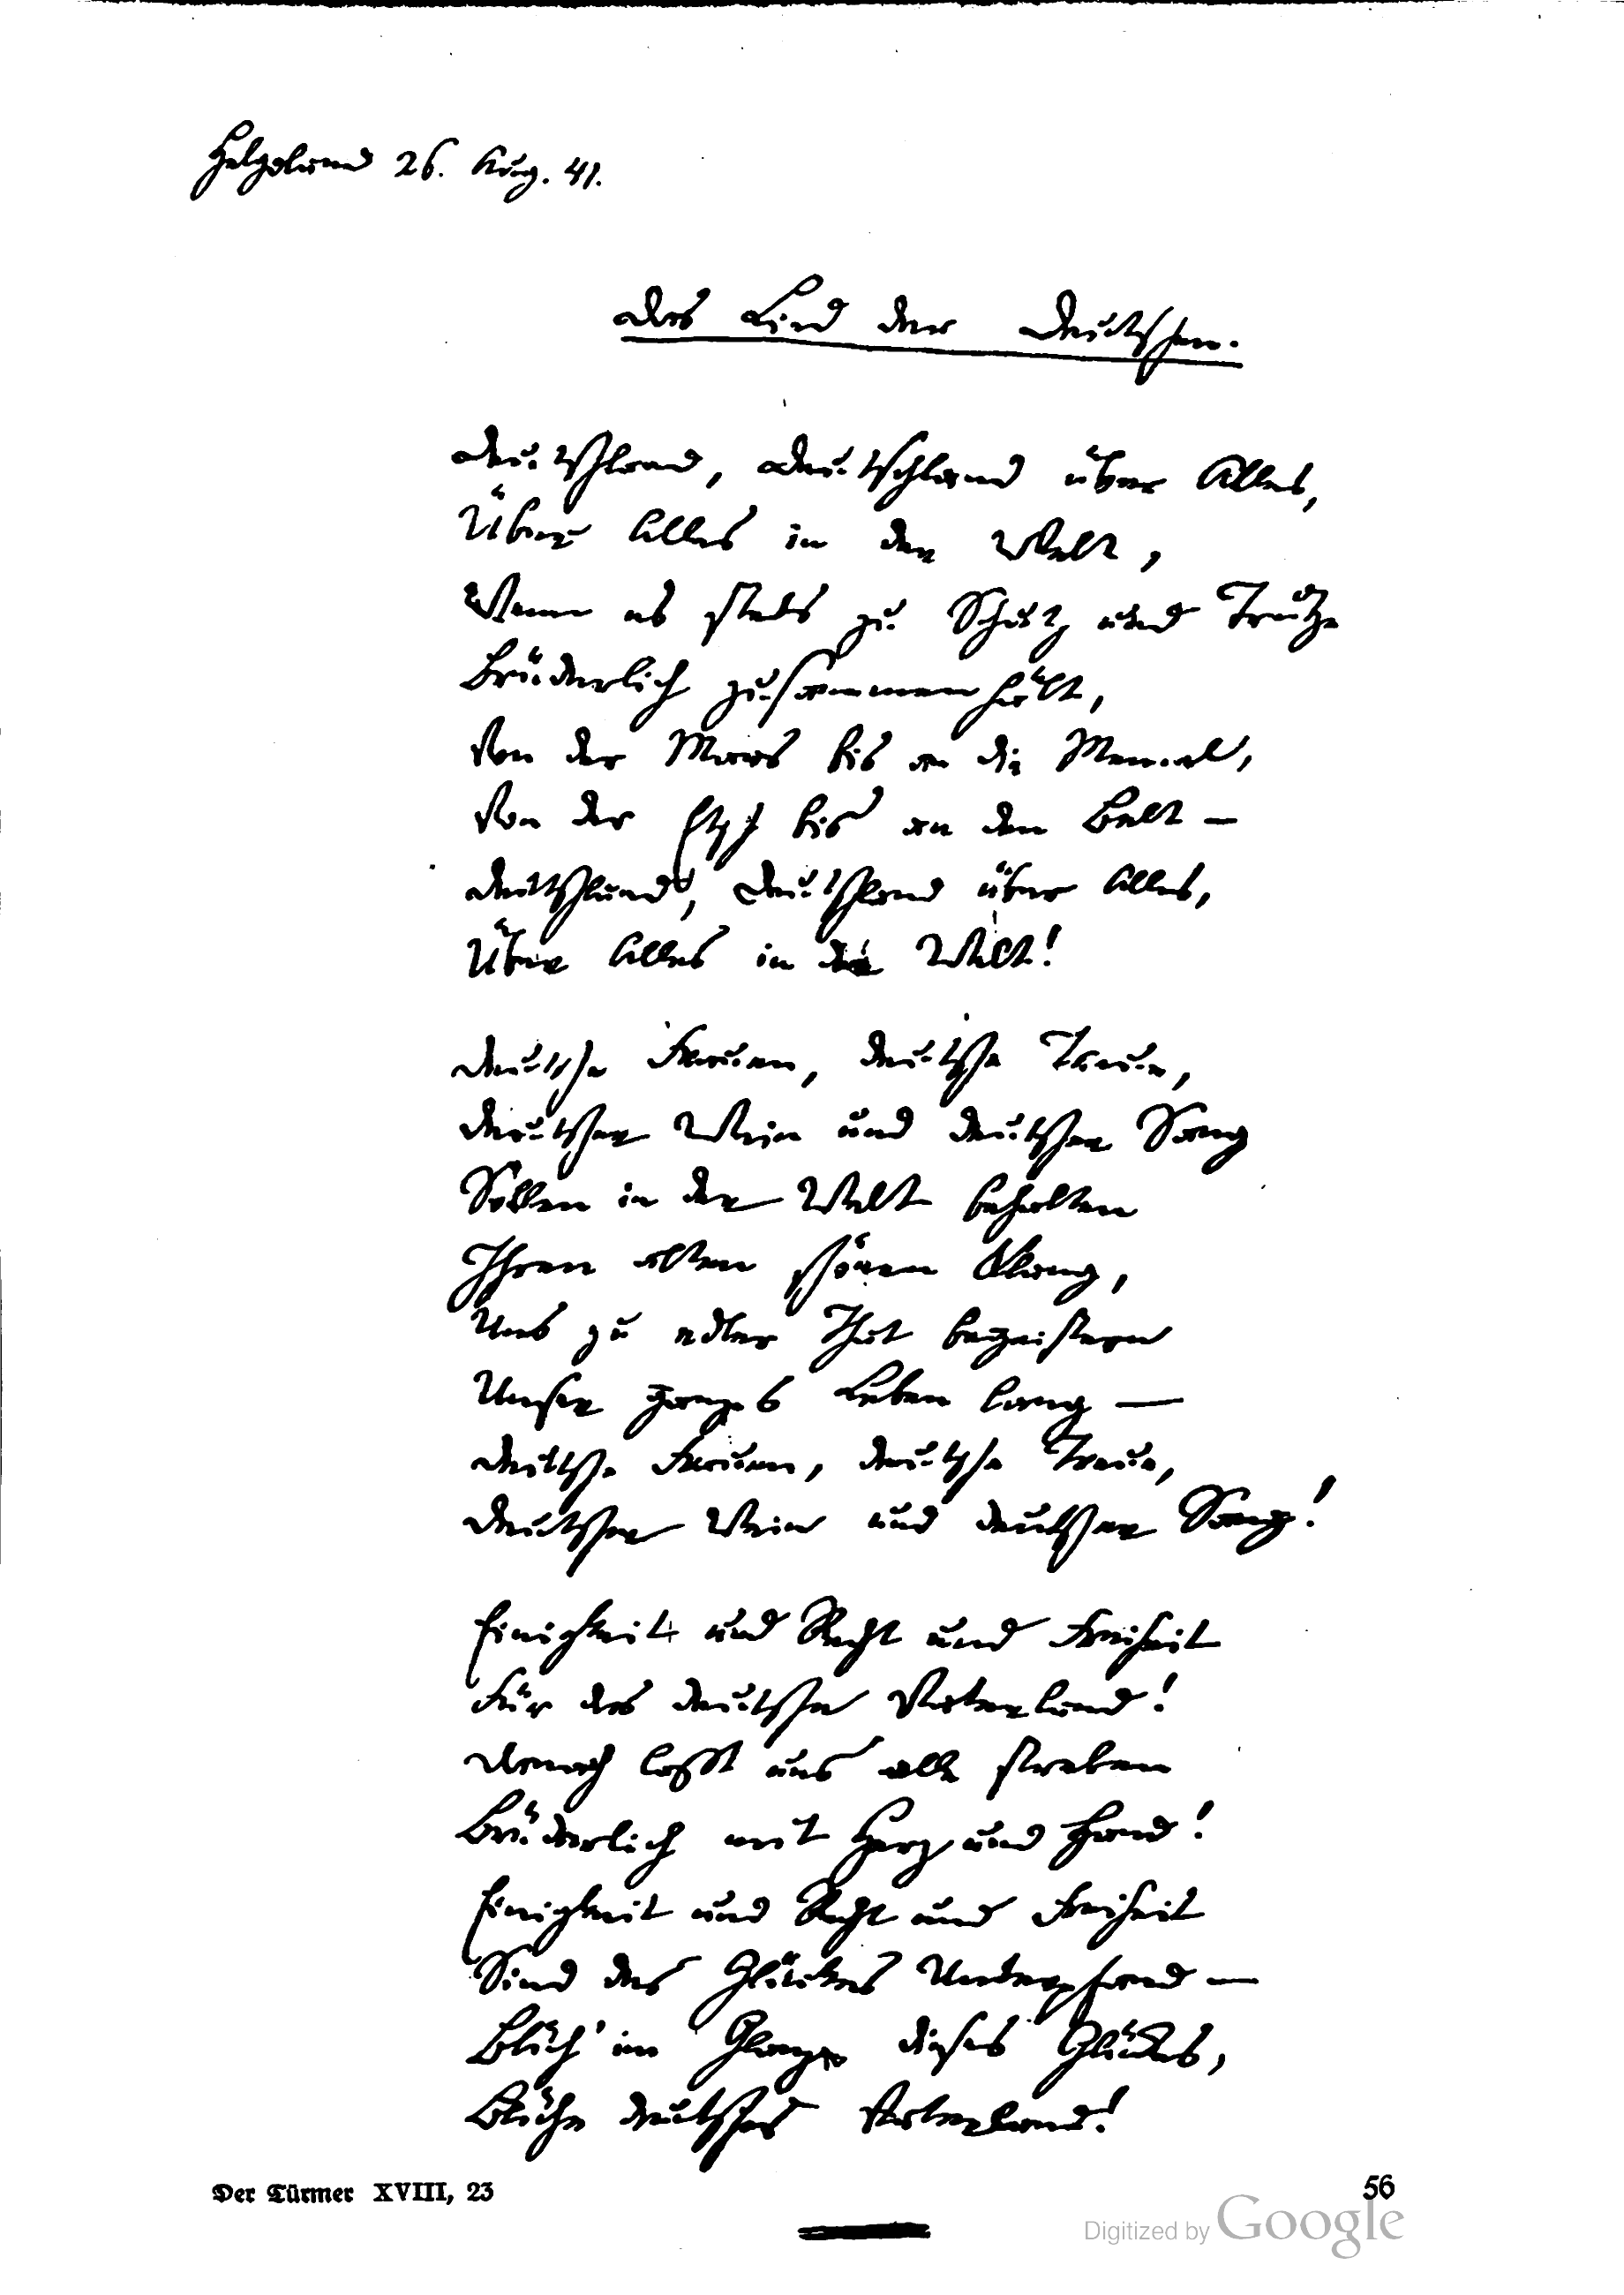 Helgoland 26. Aug. 41.
Das Lied der Deutschen.
Deutschland, Deutschland über Alles,
Über Alles in der Welt,
Wenn es stets zu Schutz und Trutze
Brüderlich zusammenhält,
Von der Maas bis an die Memel,
Von der Etsch bis an den Belt –
Deutschland, Deutschland über Alles,
Über Alles in der Welt!
Deutsche Frauen, deutsche Treue,
Deutscher Wein und deutscher Sang
Sollen in der Welt behalten
Ihren alten schönen Klang,
Uns zu edler That begeistern
Unser ganzes Leben lang –
Deutsche Frauen, deutsche Treue,
Deutscher Wein und deutscher Sang!
Einigkeit und Recht und Freiheit
Für das deutsche Vaterland!
Danach lasst uns alle streben
Brüderlich mit Herz und Hand!
Einigkeit und Recht und Freiheit
Sind des Glückes Unterpfand –
Blüh' im Glanze dieses Glückes,
Blühe deutsches Vaterland!
Der Türmer XVIII, 23
56
Digitized by Google